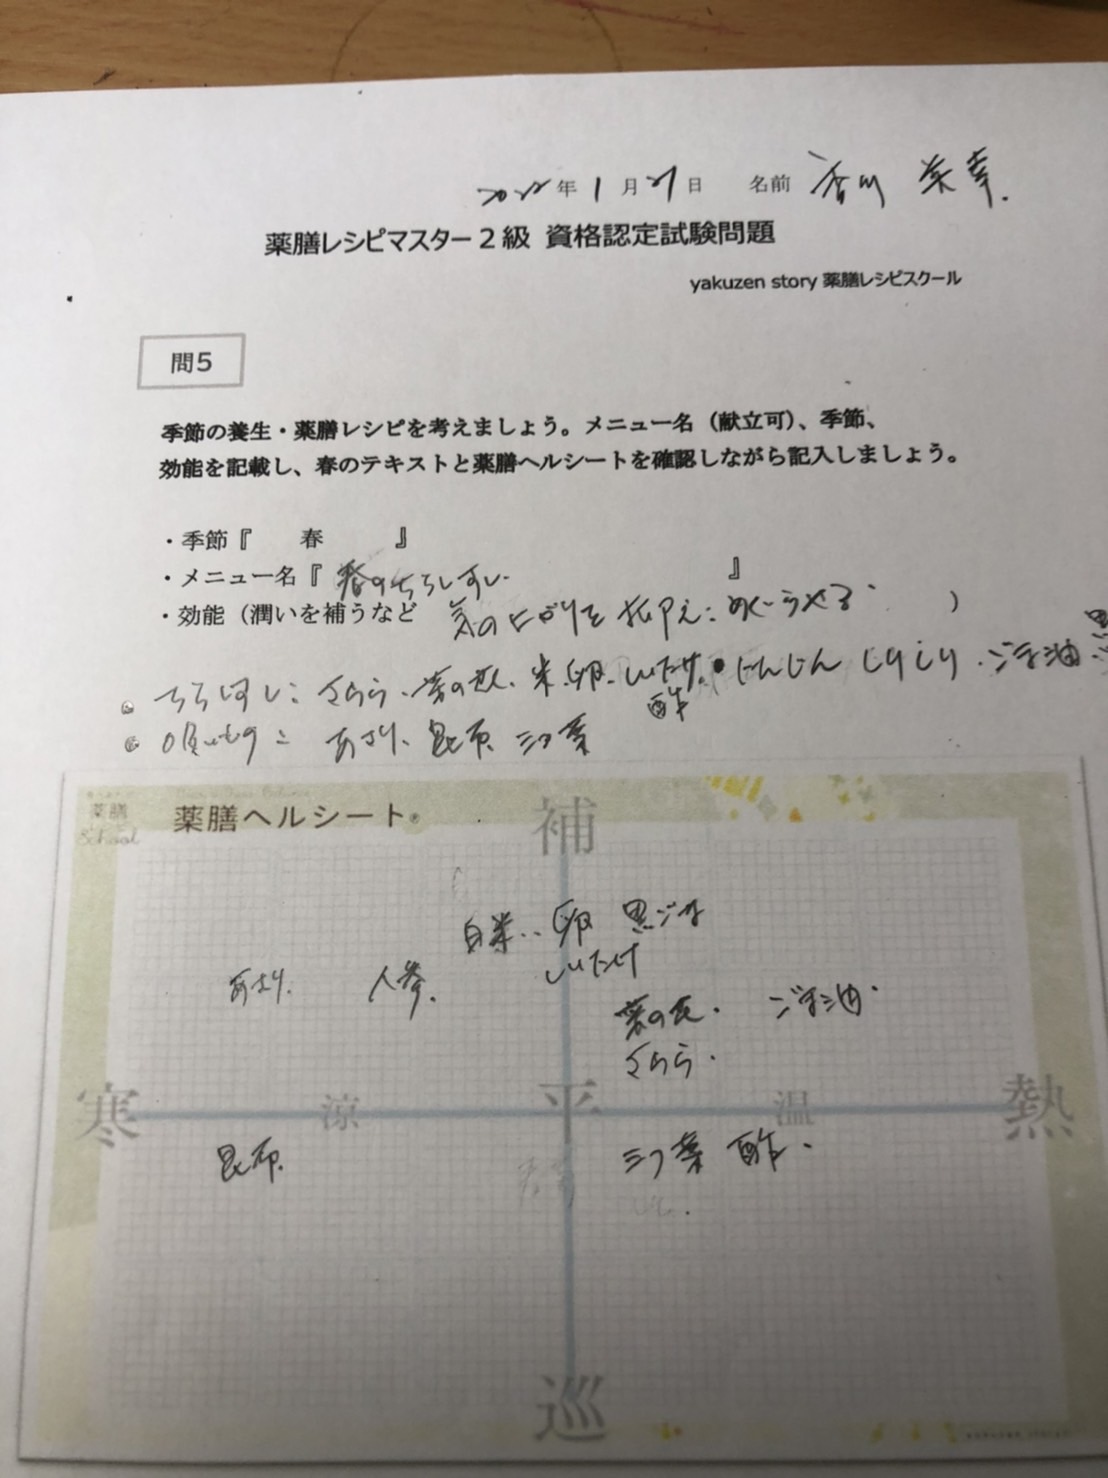 2022年1月21日 名前 香川
薬膳レシピマスター2級 資格認定試験問題
yakuzen story 薬膳レシピスクール
問5
季節の養生・薬膳レシピを考えましょう。メニュー名（献立可）、季節、
効能を記載し、春のテキストと薬膳ヘルシートを確認しながら記入しましょう。
・季節『 春 』
・メニュー名『 春のちらしずし 』
・効能（潤いを補うなど 気の上がりを抑え: めぐらせる ）
ちらしずし: さわら、菜の花、米、卵、しいたけ、にんじんしりしり、ごま油、黒
酢
吸いもの: あさり、昆布、三つ葉
薬膳
School
薬膳ヘルシート®
補
白米 卵 黒ごま
あさり 人参 しいたけ
菜の花 ごま油
さわら
寒 涼 平 温 熱
昆布 三つ葉 酢
巡